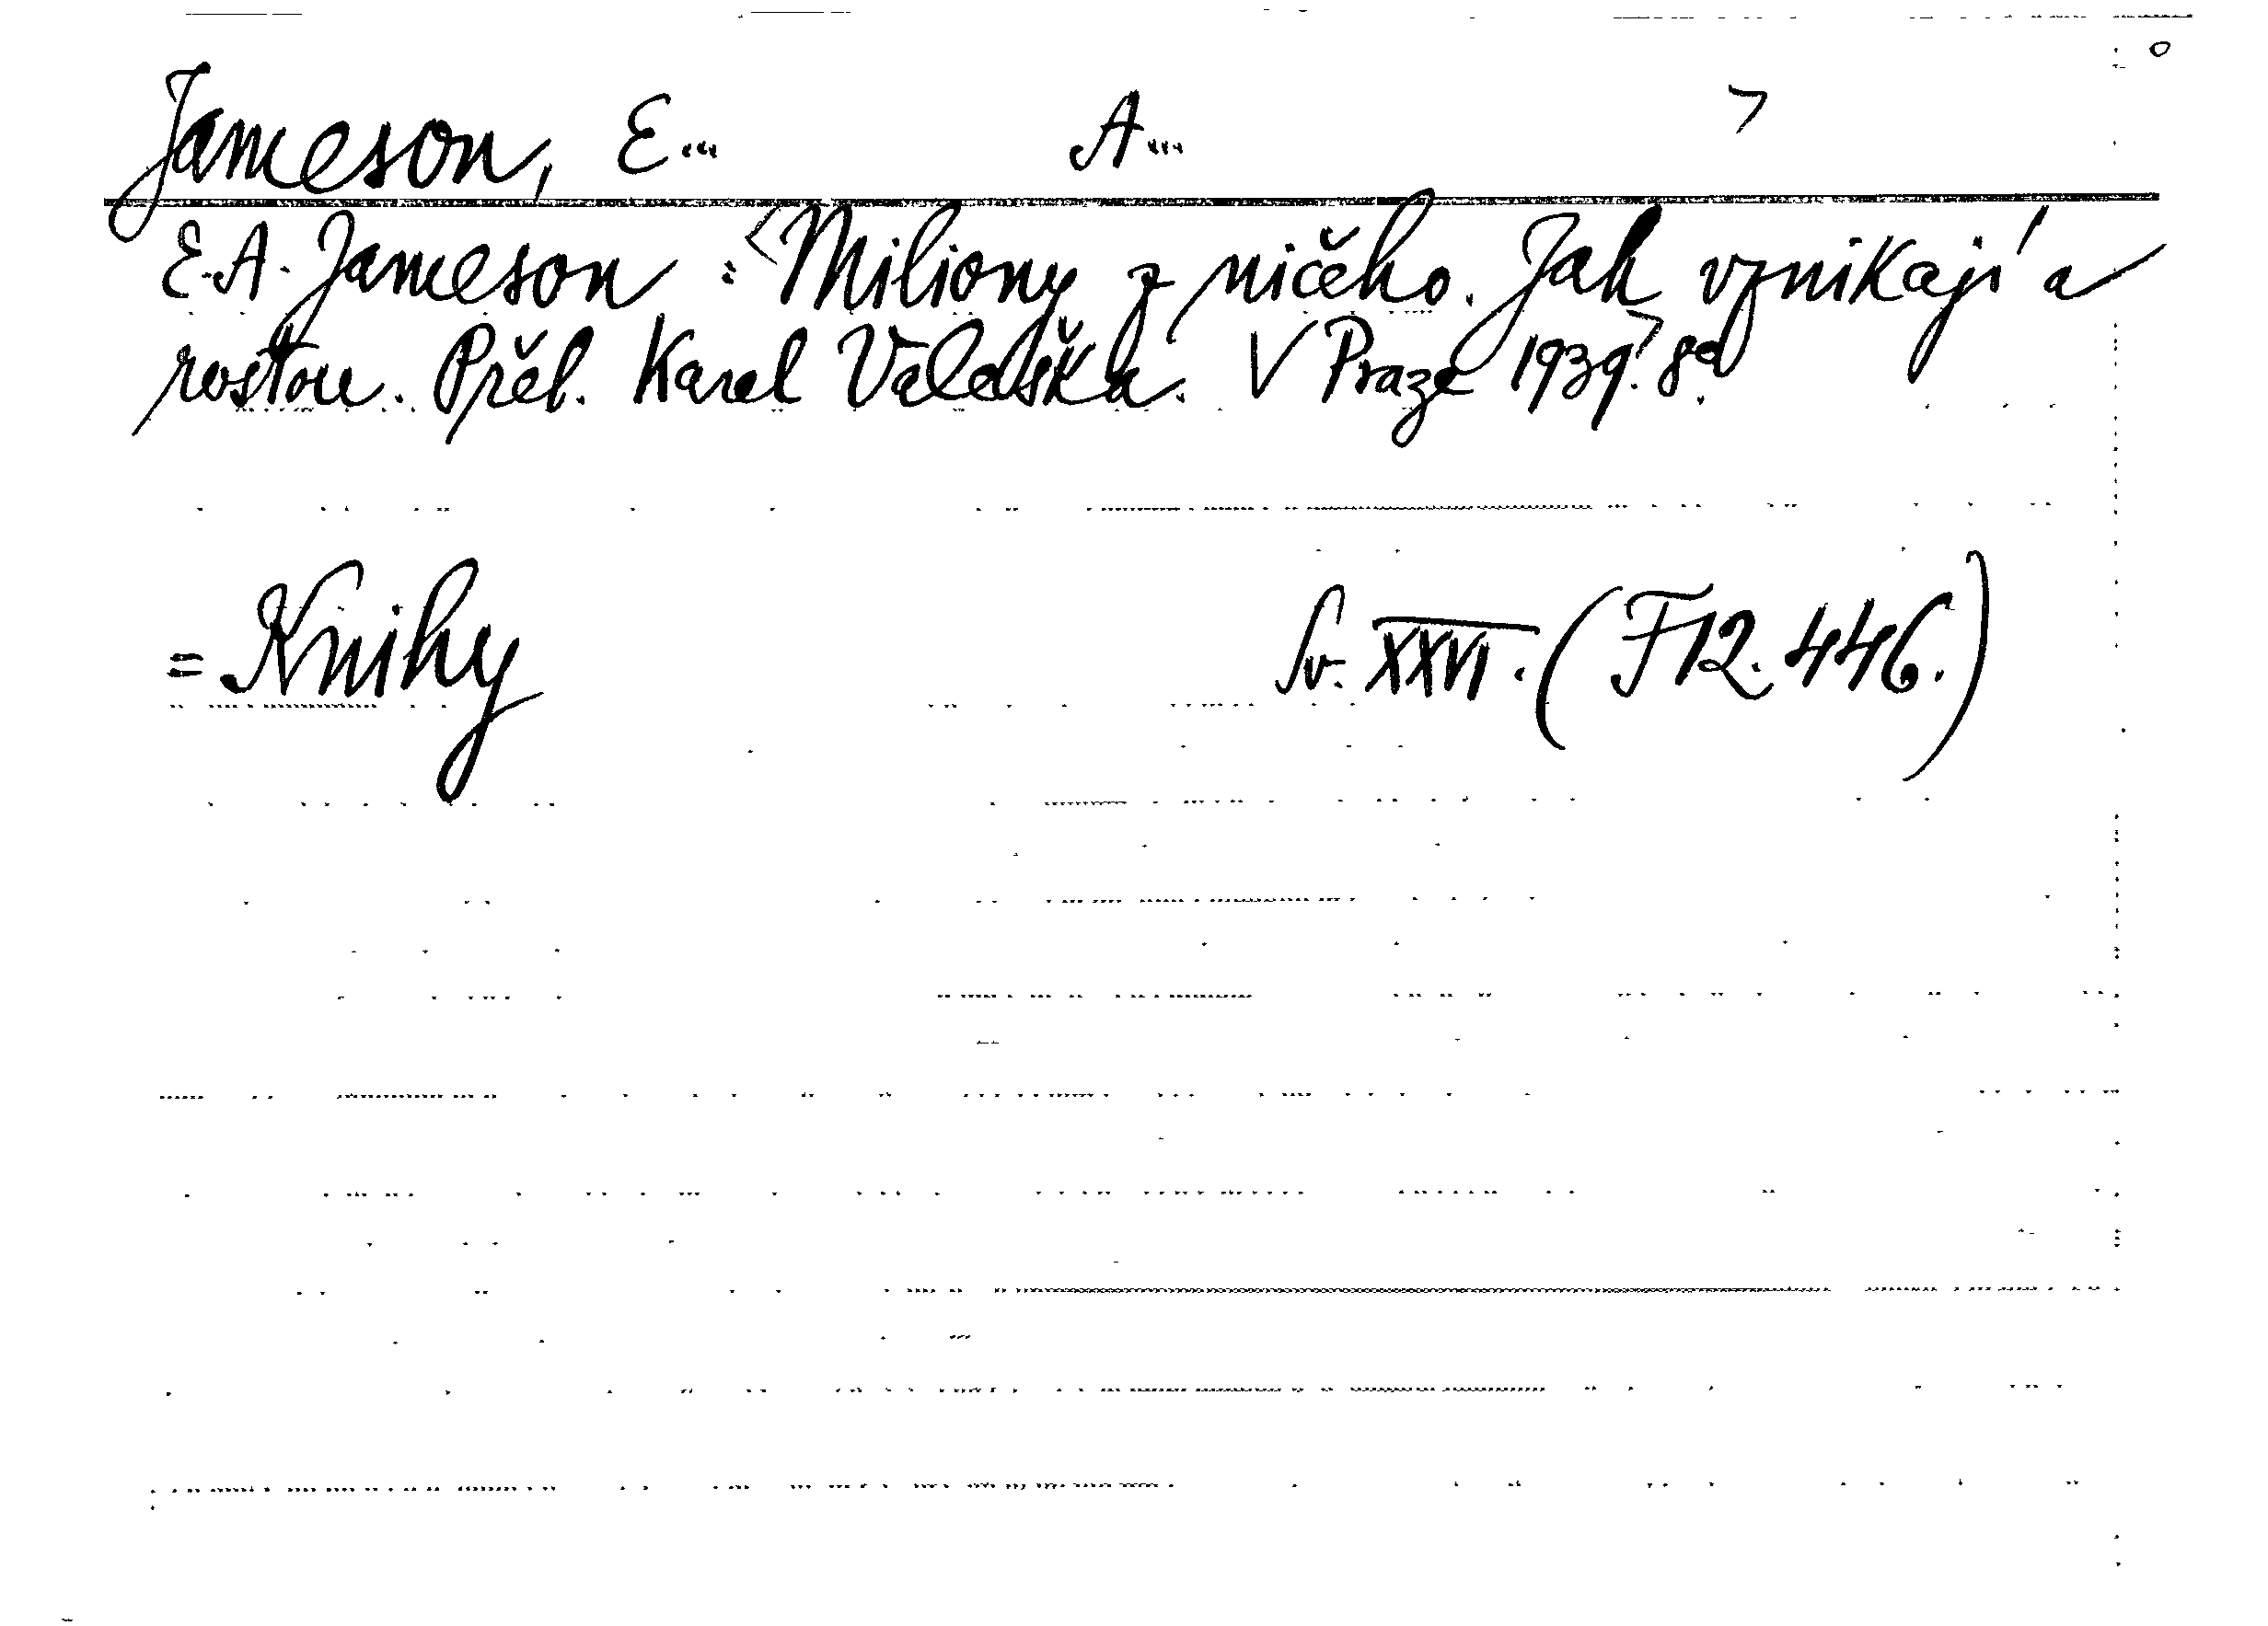 Jameson, E... A...
E. A. Jameson: Miliony z ničeho. Jak vznikají a
rostou. Přel. Karel Valaška. V Praze 1939. 8°.
= Knihy Sv. XXVI. (F 12.446.)